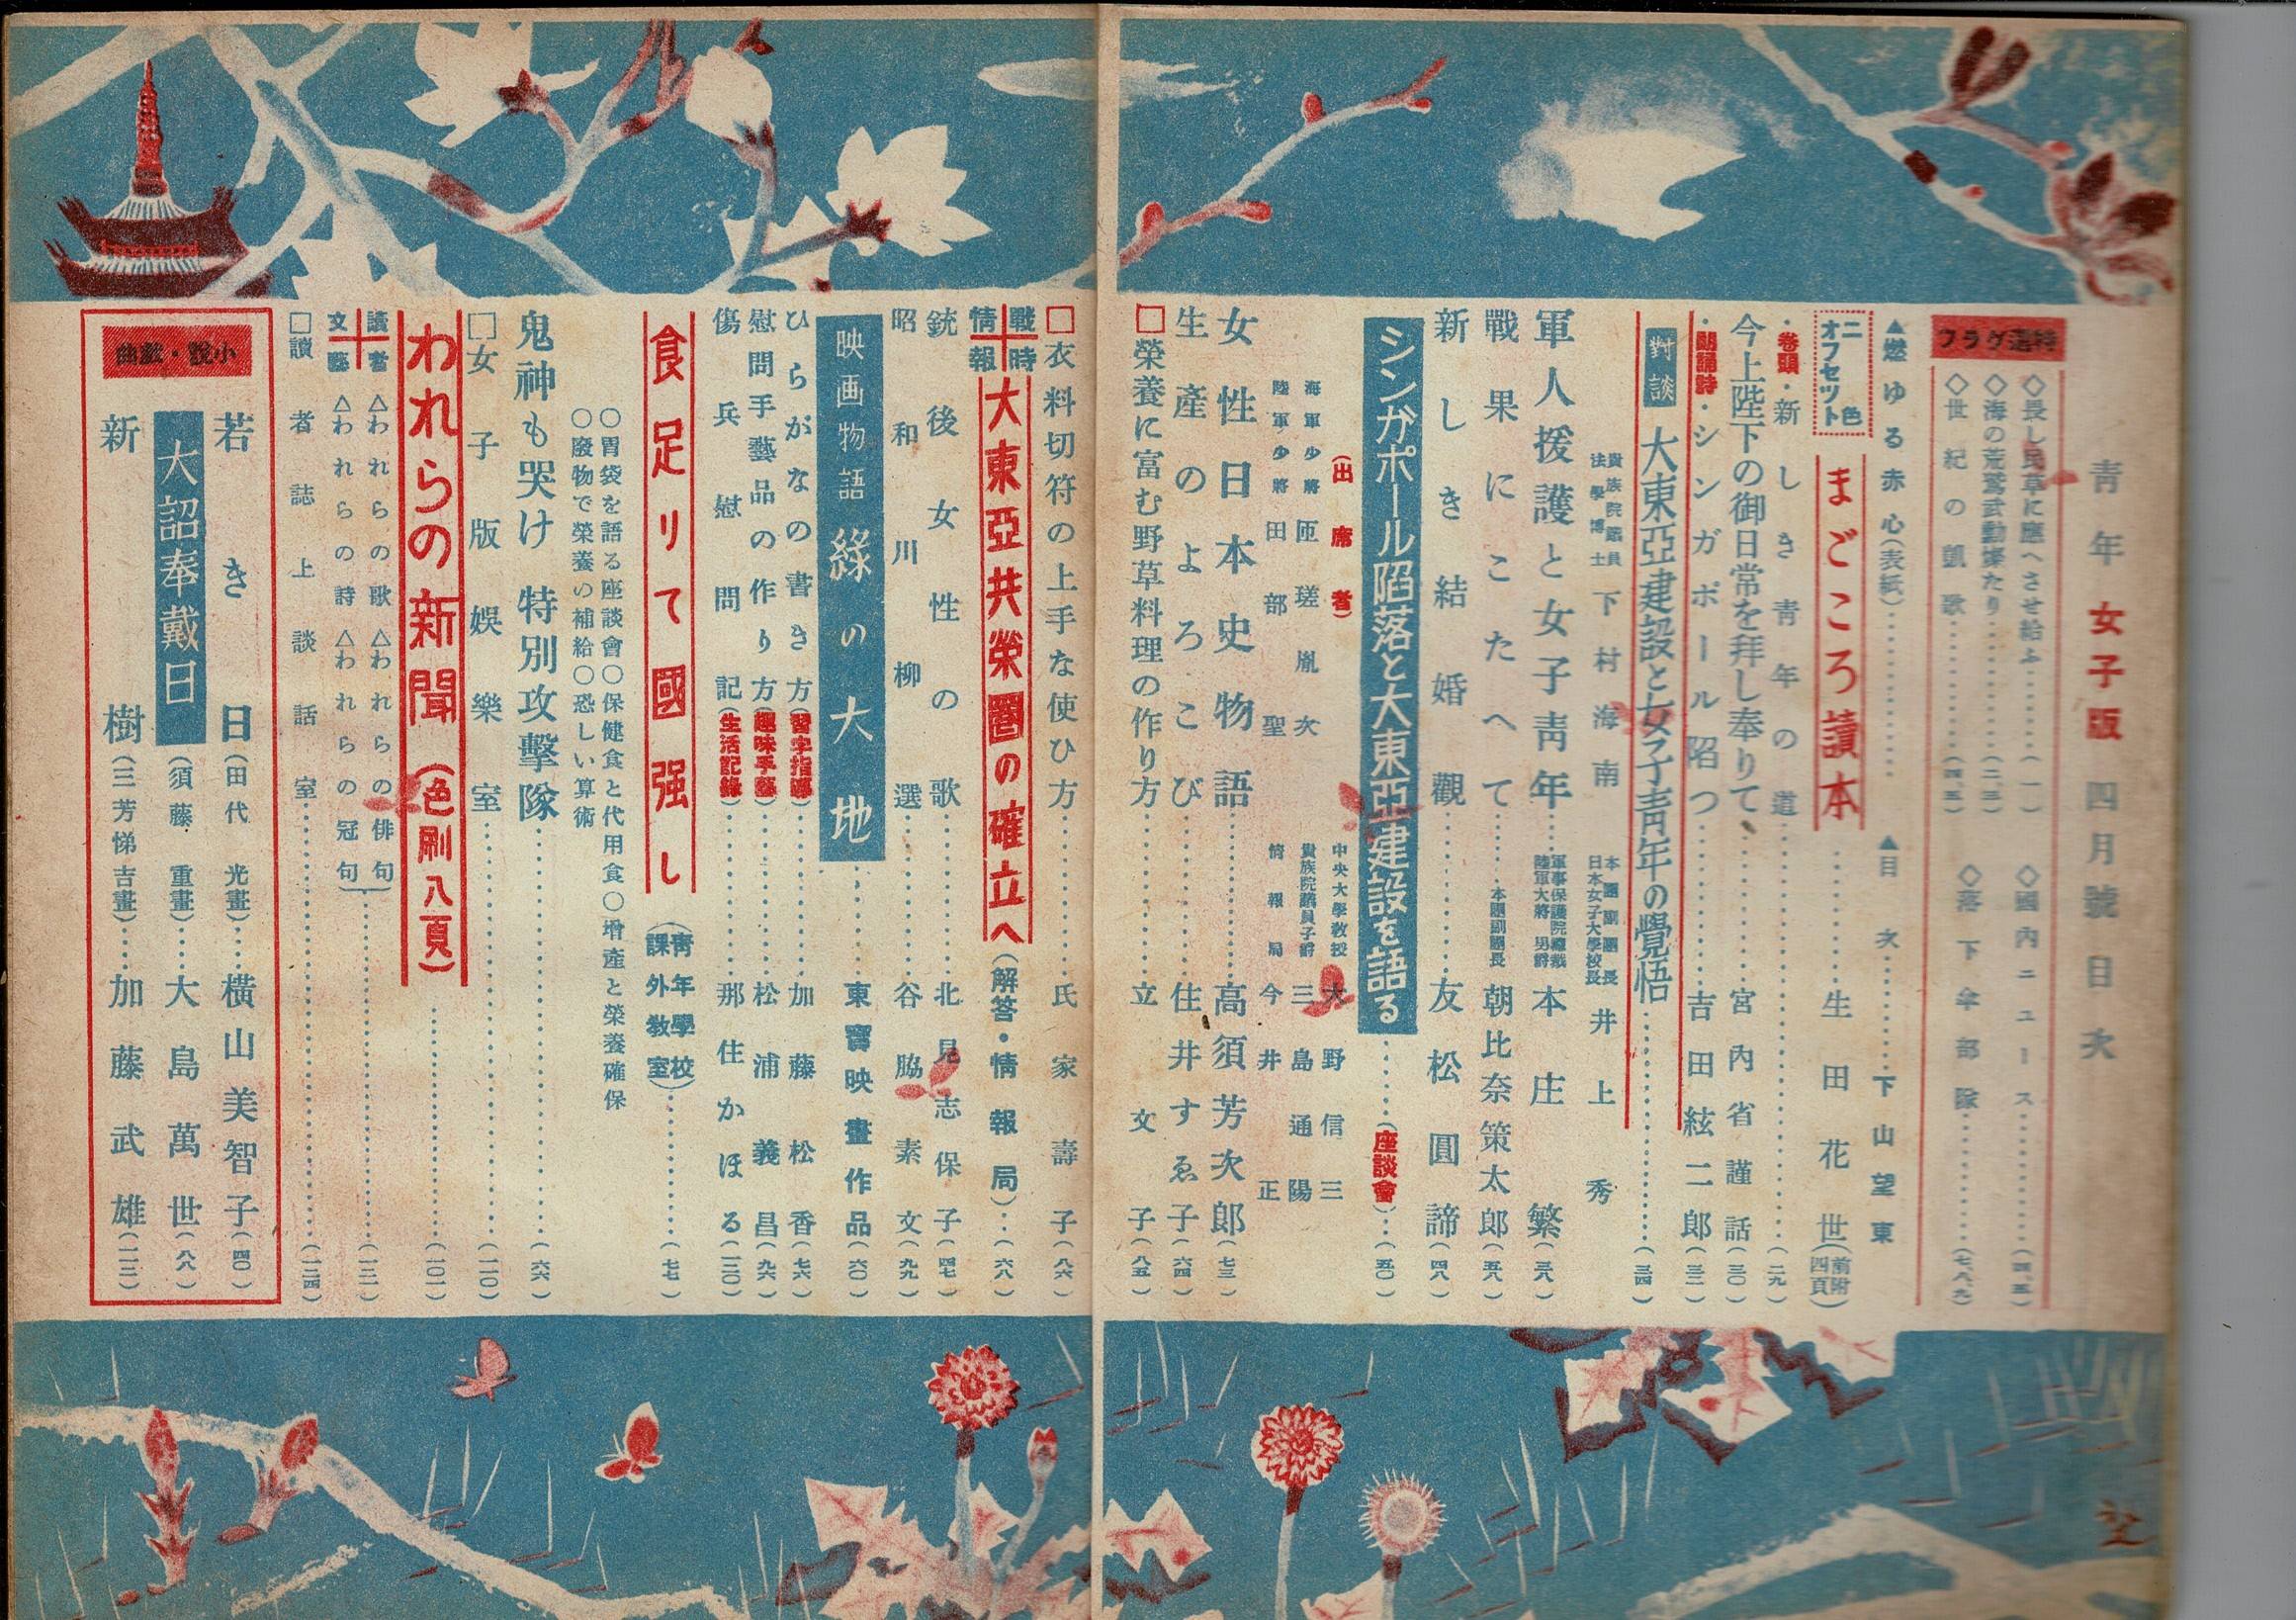 青年 女子版 四月號 目次
特選グラフ
◇畏し民草に應へさせ給ふ……(一)
◇國內ニユース……(四、五)
◇海の荒鷲武勳燦たり……(二、三)
◇世紀の凱歌……(四、五)
◇落下傘部隊……(七、八、九)
▲燃ゆる赤心(表紙)……
▲目次……下山望東
二色オフセツト
まごころ讀本……生田花世(前附四頁)
・卷頭・新しき靑年の道……(二九)
今上陛下の御日常を拜し奉りて……宮內省謹話(三〇)
・朗誦詩・シンガポール陷つ……吉田絃二郎(三二)
對談 大東亞建設と女子靑年の覺悟……(三四)
貴族院議員 法學博士 下村海南
本團副團長 日本女子大學校長 井上秀
軍人援護と女子靑年……軍事保護院總裁 陸軍大將 男爵 本庄繁(三八)
戰果にこたへて……本團副團長 朝比奈策太郎(五八)
新しき結婚觀……友松圓諦(四八)
シンガポール陷落と大東亞建設を語る……(座談會)……(五〇)
(出席者)
中央大學敎授 大野信三
海軍少將 匝瑳胤次
貴族院議員子爵 三島通陽
陸軍少將 田部聖
情報局 今井正
女性日本史物語……高須芳次郎(七三)
生產のよろこび……住井すゑ子(六四)
□榮養に富む野草料理の作り方……立文子(八五)
□衣料切符の上手な使ひ方……氏家壽子(八六)
戰時情報 大東亞共榮圈の確立へ(解答・情報局)…(六八)
銃後女性の歌……北見志保子(四七)
昭和川柳選……谷脇素文(九九)
映画物語 綠の大地……東寶映畫作品(六〇)
ひらがなの書き方(習字指導)……加藤松香(七六)
慰問手藝品の作り方(趣味手藝)……松浦義昌(九六)
傷兵慰問記(生活記錄)……那住かほる(一二〇)
食足りて國强し(靑年學校課外敎室)……(七七)
○胃袋を語る座談會○保健食と代用食○增產と榮養確保
○廢物で榮養の補給○恐しい算術
鬼神も哭け 特別攻擊隊……(六六)
□女子版娛樂室……(一一〇)
われらの新聞(色刷八頁)……(一〇一)
讀者文藝
△われらの歌△われらの俳句
△われらの詩△われらの冠句……(一二一)
□讀者誌上談話室……(一二四)
小說・戲曲
若き日(田代光畫)……橫山美智子(四〇)
大詔奉戴日(須藤重畫)……大島萬世(八八)
新樹(三芳悌吉畫)……加藤武雄(一一二)